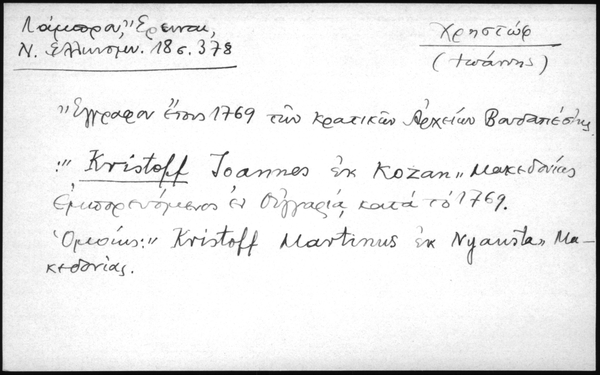 Λάμπρου, "Ερευναι,
Ν. Ελληνομν. 18 σ. 378
Χρηστώφ
(Ιωάννης)
"Εγγραφον ἔτους 1769 τῶν κρατικῶν Ἀρχείων Βουδαπέστης
:" Kristoff Joannes ἐκ Kozan" Μακεδονίας
ἐμπορευόμενος ἐν Οὑγγαρίᾳ κατὰ τὸ 1769.
Ὁμοίως:" Kristoff Martinus ἐκ Nyausta" Μα-
κεδονίας.